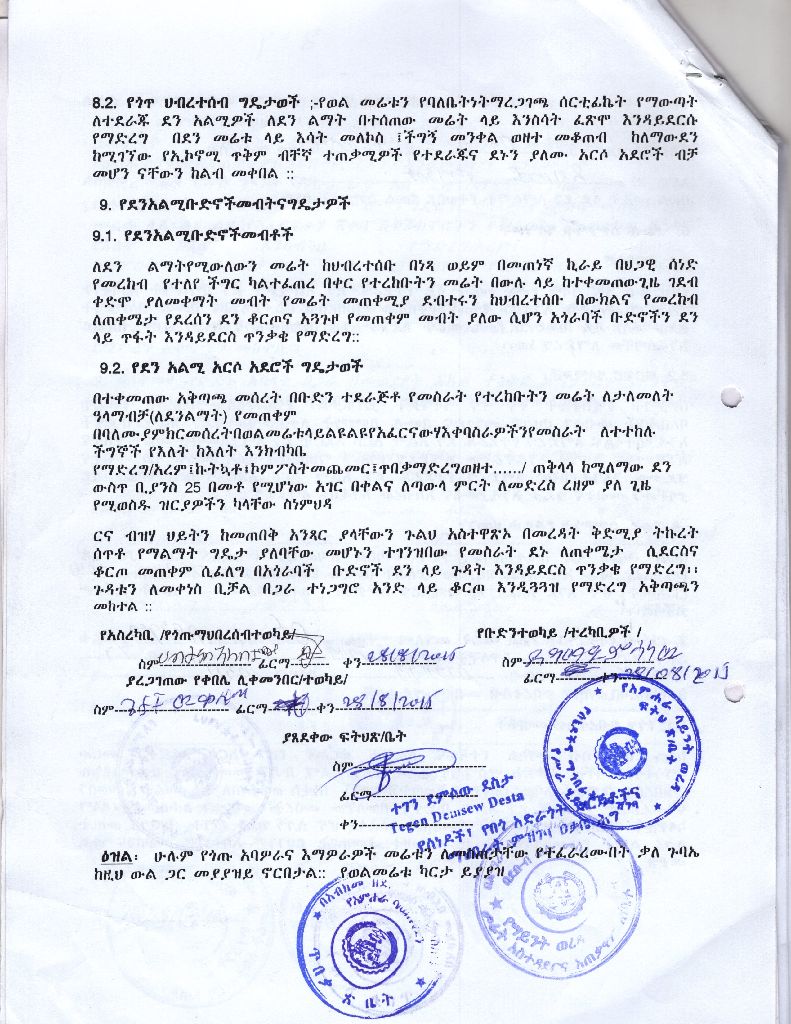 8.2. የጎጥ ህብረተሰብ ግዴታወች ;-የወል መሬቱን የባለቤትነትማረጋገጫ ሰርቲፊኬት የማውጣት
ለተደራጁ ደን አልሚዎች ለደን ልማት በተሰጠው መሬት ላይ እንስሳት ፈጽሞ እንዳይደርሱ
የማድረግ በደን መሬቱ ላይ እሳት መለኮስ ፤ችግኝ መንቀል ወዘተ መቆጠብ ከለማውደን
ከሚገኘው የኢኮኖሚ ጥቅም ብቸኛ ተጠቃሚዎች የተደራጁና ደኑን ያለሙ አርሶ አደሮች ብቻ
መሆን ናቸውን ከልብ መቀበል ::
9. የደንአልሚቡድኖችመብትናግዴታዎች
9.1. የደንአልሚቡድኖችመብቶች
ለደን ልማትየሚውለውን መሬት ከህብረተሰቡ በነጻ ወይም በመጠነኛ ኪራይ በህጋዊ ሰነድ
የመረከብ የተለየ ችግር ካልተፈጠረ በቀር የተረከቡትን መሬት በውሉ ላይ ከተቀመጠውጊዜ ገደብ
ቀድሞ ያለመቀማት መብት የመሬት መጠቀሚያ ደብተሩን ከህብረተሰቡ በውክልና የመረከብ
ለጠቀሜታ የደረሰን ደን ቆርጦና አጓጉዞ የመጠቀም መብት ያለው ሲሆን አጎራባች ቡድኖችን ደን
ላይ ጥፋት እንዳይደርስ ጥንቃቄ የማድረግ::
9.2. የደን አልሚ አርሶ አደሮች ግዴታወች
በተቀመጠው አቅጣጫ መሰረት በቡድን ተደራጅቶ የመስራት የተረከቡትን መሬት ለታለመለት
ዓላማብቻ(ለደንልማት) የመጠቀም
በባለሙያምክርመሰረትበወልመሬቱላይልዩልዩየአፈርናውሃእቀባስራዎችንየመስራት ለተተከሉ
ችግኞች የእለት ከእለት እንክብካቤ
የማድረግ/አረም፤ኩትኳቶ፤ኮምፖስትመጨመር፤ጥበቃማድረግወዘተ....../ ጠቅላላ ከሚለማው ደን
ውስጥ ቢያንስ 25 በመቶ የሚሆነው አገር በቀልና ለጣውላ ምርት ለመድረስ ረዘም ያለ ጊዜ
የሚወስዱ ዝርያዎችን ካላቸው ስነምህዳ
ርና ብዝሃ ህይትን ከመጠበቅ አንጻር ያላቸውን ጉልህ አስተዋጽኦ በመረዳት ቅድሚያ ትኩረት
ሰጥቶ የማልማት ግዴታ ያለባቸው መሆኑን ተገንዝበው የመስራት ደኑ ለጠቀሜታ ሲደርስና
ቆርጦ መጠቀም ሲፈለግ በአጎራባች ቡድኖች ደን ላይ ጉዳት እንዳይደርስ ጥንቃቄ የማድረግ፡፡
ጉዳቱን ለመቀነስ ቢቻል በጋራ ተነጋግሮ አንድ ላይ ቆርጦ እንዲጓጓዝ የማድረግ አቅጣጫን
መከተል ::
የአስረካቢ /የጎጡማህበረሰብተወካይ/ የቡድንተወካይ /ተረካቢዎች /
ስም ፊርማ ቀን 28/8/2015 ስም
ያረጋገጠው የቀበሌ ሊቀመንበር/ተወካይ/ ፊርማ ቀን 28/08/2015
ስም ፊርማ ቀን 28/8/2015
ያጸደቀው ፍትህጽ/ቤት
ስም
ፊርማ
ቀን
ተገን ደምሰው ደስታ
Tegen Demsew Desta
ዕዝል፡ ሁሉም የጎጡ አባዎራና እማዎራዎች መሬቱን ለመስጠታቸው የተፈራረሙበት ቃለ ጉባኤ
ከዚህ ውል ጋር መያያዝይ ኖርበታል:: የወልመሬቱ ካርታ ይያያዝ
ጥበቃ ጽ ቤት